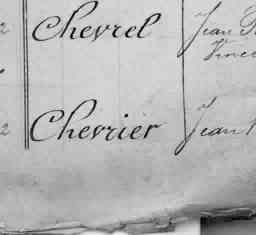 2 Chevrel Jean
Vinc
2 Chevrier Jean